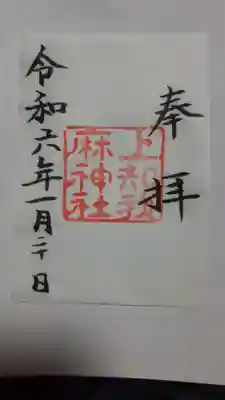 奉拝
上知我
麻神社
令和六年一月二十日